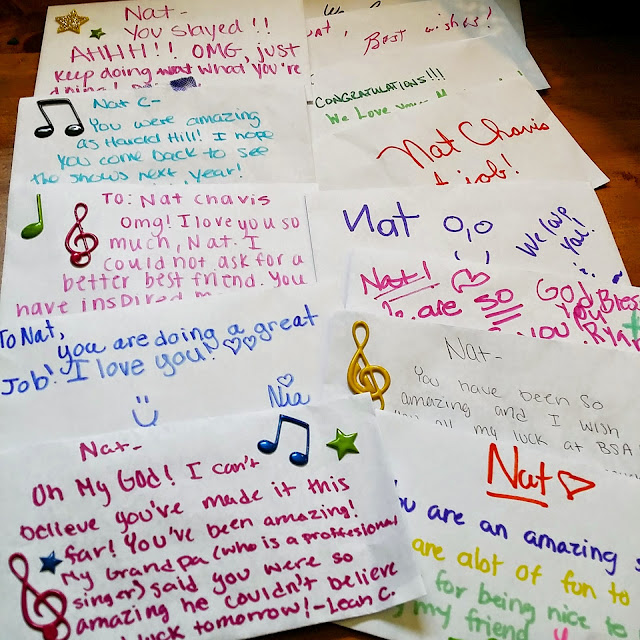 Nat-
You slayed!!
AHHH!! OMG, just
keep doing what you're
doing!
Nat C-
You were amazing
as Harold Hill! I hope
you come back to see
the shows next year!
To: Nat Chavis
Omg! I love you so
much, Nat. I
could not ask for a
better best friend. You
have inspired
To Nat,
you are doing a great
Job! I love you!
Nia
Nat-
Oh My God! I can't
believe you've made it this
far! You've been amazing!
My Grandpa (who is a proffessional
singer) said you were so
amazing he couldn't believe
luck tomorrow! -Leah C.
Best wishes!
CONGRATULATIONS!!!
We Love
Nat Chavis
job!
Nat
We love
you!
Nat!
are so
God Bless
you
Ryan
Nat-
You have been so
amazing and I wish
all my luck at BSA
Nat
You are an amazing
are alot of fun to
for being nice to
my friend